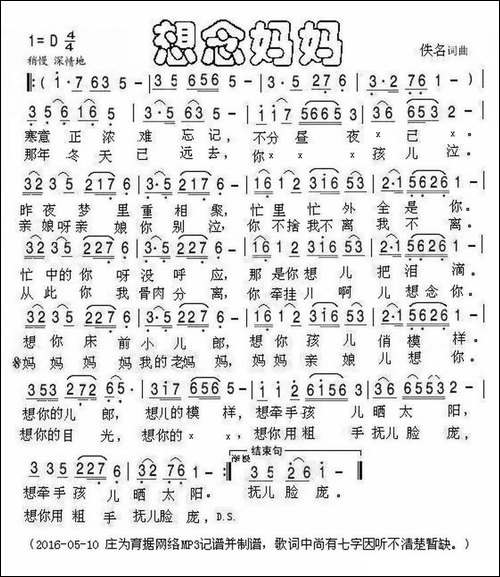 想念妈妈
1=D 4/4
佚名词曲
稍慢 深情地
‖:( i·7 6 3 5 - | 3 5 6 5 6 5 - | 3·5 2 1 7 6 - | 3·2 7 6 1 - )|
3 5 6i 6 5 | i·6 3 5 - | i i 7 5 6 6 5 3 | 3 6 6 5 3 2 - |
寒意正浓难忘记， 不分昼夜×已×。
那年冬天已远去， 你×××孩儿泣。
3 2 3 5 2 2 7 6 | 3·5 2 1 7 6 - | 1 6 1 2 3 i 6 5 3 | 2·1 5 6 2 6 1 - |
昨夜梦里重相聚， 忙里忙外全是你。
亲娘呀亲娘你别泣， 你不捨我不离我不离。
3 2 3 5 2 2 7 6 | 3·5 2 1 7 6 - | 1 6 1 2 3 i 6 5 3 | 2·1 5 6 2 6 1 - |
忙中的你呀没呼应， 那是你想儿把泪滴。
从此你我骨肉分离， 你牵挂儿啊儿想念你。
3 2 3 5 2 2 7 6 | 3·5 2 1 7 6 - | 1 6 1 2 3 i 6 5 3 | 2·1 5 6 2 6 1 - |
想你床前小儿郎， 想你孩儿俏模样。
妈妈妈妈我的老妈妈， 妈妈亲娘儿想你。
3 5 3 2 7 2 6 5· | 3 i 7 6 5 6 5 - | i i 2 6 i 5 6 3 | 3 6 6 5 5 3 2 - |
想你的儿郎， 想儿的模样， 想牵手孩儿晒太阳，
想你的目光， 想你的××， 想你用粗手抚儿脸庞，
结束句
3 3 5 2 2 7 6 | 3 2 7 6 1 - :‖ 3 5 2 6 1 - ‖
想牵手孩儿晒太阳。 抚儿脸庞。
想你用粗手抚儿脸庞，D.S.
（2016-05-10 庄为育据网络MP3记谱并制谱，歌词中尚有七字因听不清楚暂缺。）